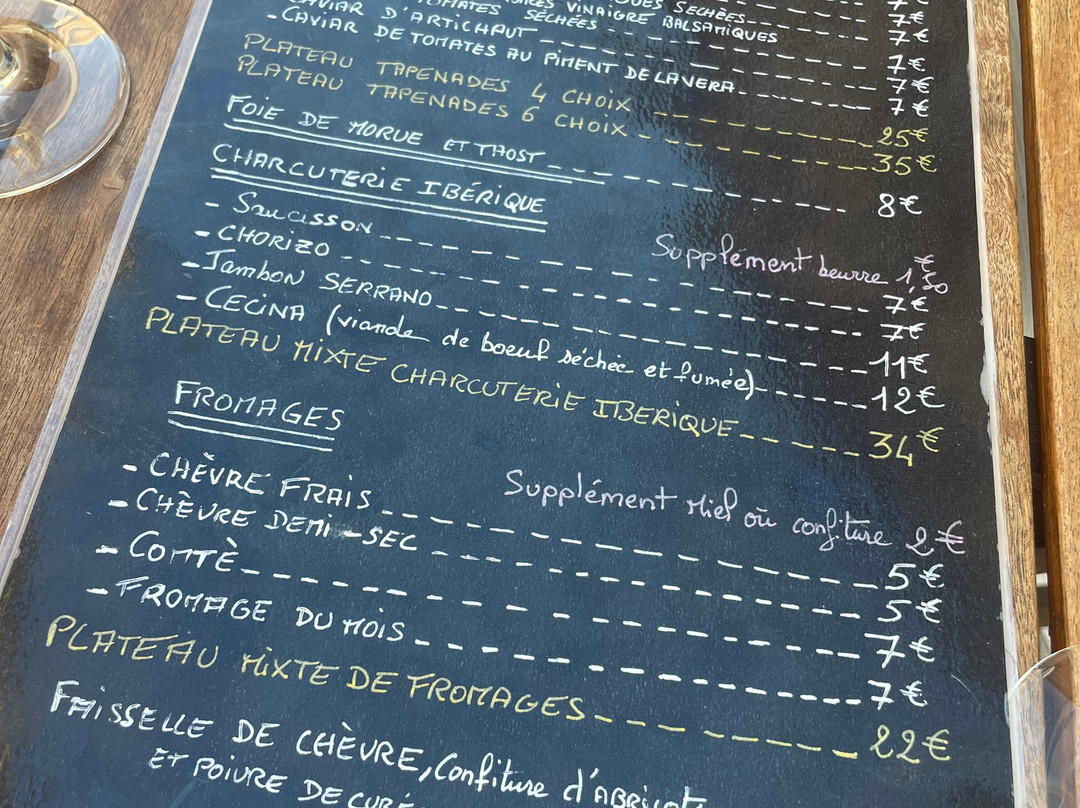 SÉCHÉES 7€
VINAIGRE BALSAMIQUES 7€
TOMATES SÉCHÉES 7€
CAVIAR D'ARTICHAUT 7€
-CAVIAR DE TOMATES AU PIMENT DE LA VERA 7€
PLATEAU TAPENADES 4 CHOIX 25€
PLATEAU TAPENADES 6 CHOIX 35€
FOIE DE MORUE ET THOST 8€
CHARCUTERIE IBÉRIQUE
Supplément beurre 1,50€
- SAUCISSON 7€
- CHORIZO 7€
- Jambon SERRANO 11€
- CECINA (viande de boeuf séchée et fumée) 12€
PLATEAU MIXTE CHARCUTERIE IBERIQUE 34€
FROMAGES
Supplément Miel où confiture 2€
- CHÈVRE FRAIS 5€
- CHÈVRE DEMI-SEC 5€
- COMTÈ 7€
- FROMAGE DU MOIS 7€
PLATEAU MIXTE DE FROMAGES 22€
FAISSELLE DE CHÈVRE, Confiture d'ABRICOT
ET POIVRE DE